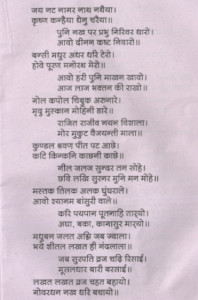 जय नट नागर नाथ नथैया।
कृष्ण कन्हैया धेनु चरैया॥
पुनि नख पर प्रभु गिरिवर धारो।
आवो दीनन कष्ट निवारो॥
बन्सी मधुर अधर धरि टेरो।
होवे पूरण मनोरथ मेरो॥
आवो हरी पुनि माखन खावो।
आज लाज भक्तन की राखो॥
गोल कपोल चिबुक अरुनारे।
मृदु मुस्कान मोहिनी डारे॥
राजित राजीव नयन विशाला।
मोर मुकुट वैजयन्ती माला॥
कुण्डल श्रवण पीत पट आछे।
कटि किंकनि काछनी काछे॥
नील जलज सुन्दर तन सोहे।
छवि लखि सुरनर मुनि मन मोहे॥
मस्तक तिलक अलक घुंघराले।
आवो श्याम बांसुरी वाले॥
करि पयपान पूतनाहि तार्‌यो।
अघा, बका, कानासुर मार्‌यो॥
मधुबन जलत अग्नि जब ज्वाला।
भये शीतल लखत ही नंदलाला॥
जब सुरपति व्रज चढ़ि रिसाई।
मूसलधार बारी बरसाई॥
लखत लखत व्रज चहत बहायो।
गोवरधन नख धरि बचायो॥